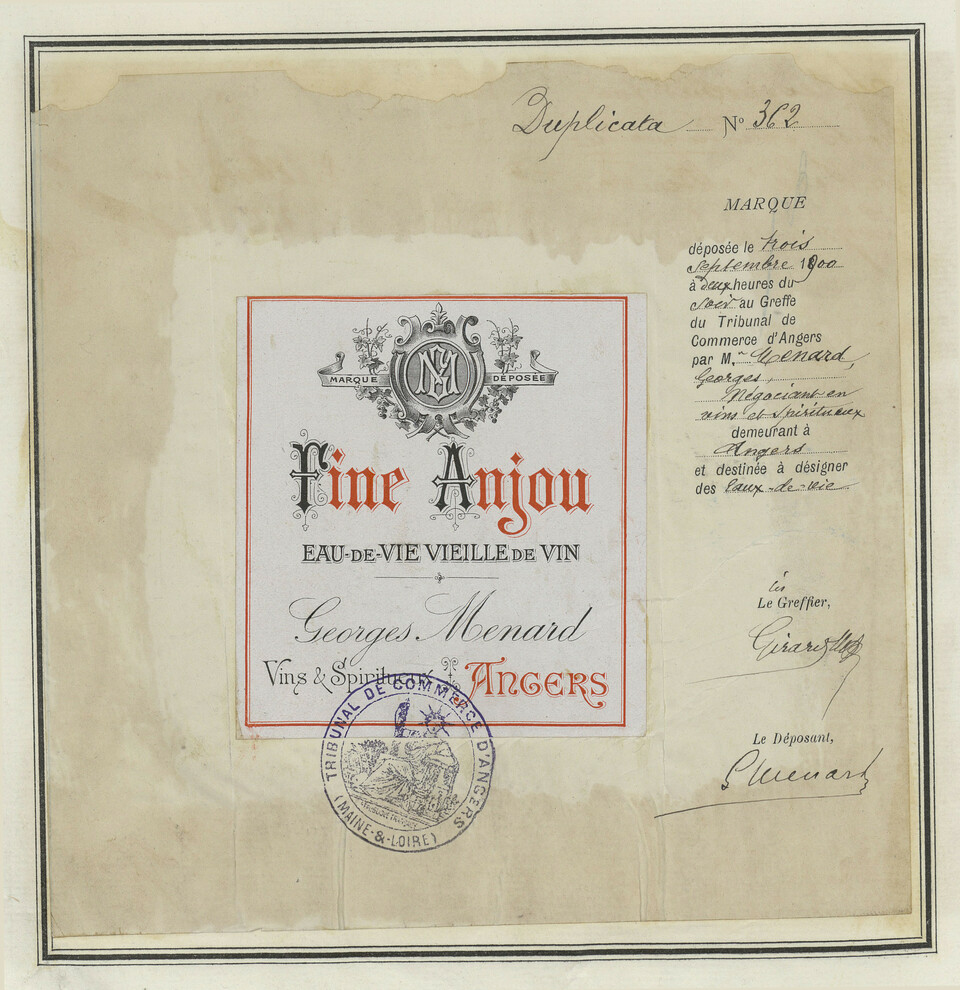 Duplicata N° 362
MARQUE
déposée le trois
Septembre 1900
à deux heures du
soir au Greffe
du Tribunal de
Commerce d'Angers
par M. Menard
Georges,
Négociant en
vins et Spiritueux
demeurant à
Angers
et destinée à désigner
des Eaux-de-vie
MARQUE DÉPOSÉE
GM
Fine Anjou
EAU-DE-VIE VIEILLE DE VIN
Georges Menard
Vins & Spiritueux ANGERS
TRIBUNAL DE COMMERCE D'ANGERS
(MAINE-&-LOIRE)
Le Greffier,
Le Déposant,
G Menard